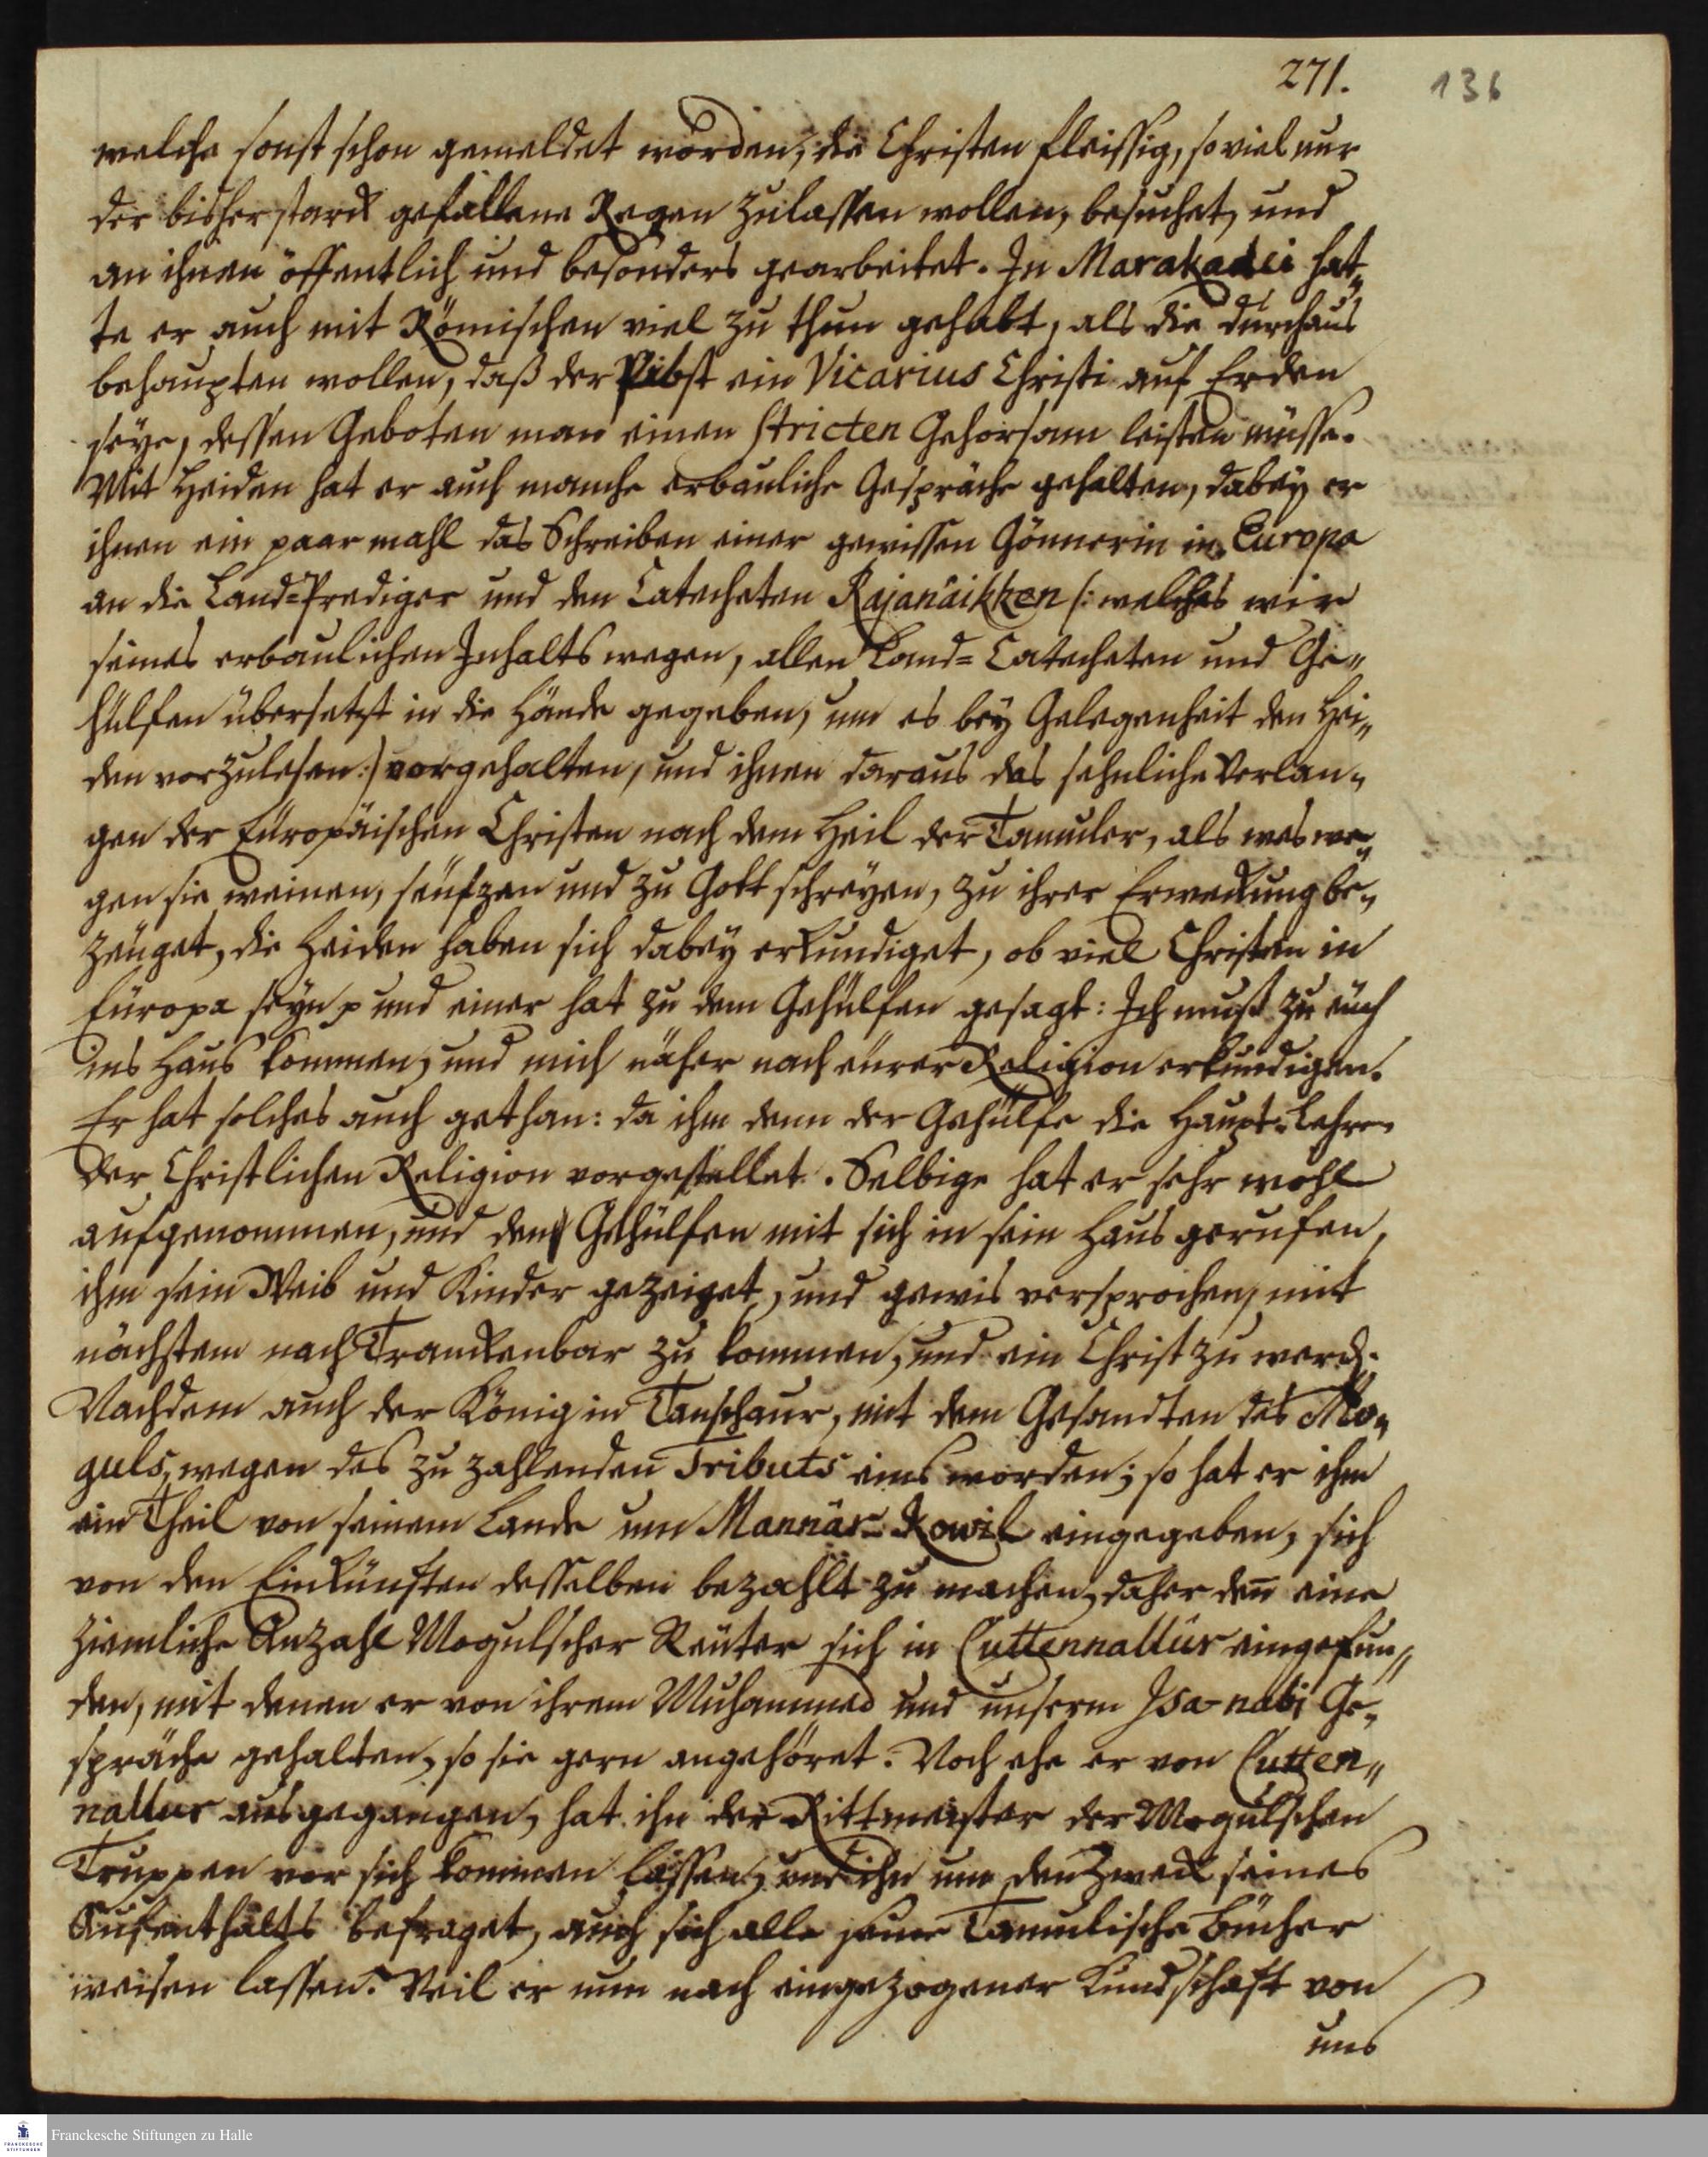 271.
136
welche sonst schon gemeldet worden, die Christen fleissig, so viel nur
der bisher starck gefallene Regen zulassen wollen, besuchet, und
an ihnen öffentlich und besonders gearbeitet. In Marakadei hat„
te er auch mit Römischen viel zu thun gehabt, als die durchaus
behaupten wollen, daß der Pabst ein Vicarius Christi auf Erden
seye, dessen Geboten man einen stricten Gehorsam leisten müsse.
Mit Heiden hat er auch manche erbauliche Gespräche gehalten, dabey er
ihnen ein paar mahl das Schreiben einer gewissen Gönnerin in Europa
an die Land=Prediger und den Catecheten Rajanaikken /: welches wir
seines erbaulichen Inhalts wegen, allen Land= Catecheten und Ge„
hülfen übersetzt in die Hände gegeben, um es bey Gelegenheit den Hei„
den vorzulesen :/ vorgehalten, und ihnen daraus das sehnliche Verlan„
gen der Europäischen Christen nach dem Heil der Tamuler, als weswe„
gen sie weinen, seufzen und zu Gott schreyen, zu ihrer Erweckung be„
zeuget, die Heiden haben sich dabey erkundiget, ob viel Christen in
Europa seyn p und einer hat zu dem Gehülfen gesagt: Ich muß zu euch
ins Haus kommen, und mich näher nach eurer Religion erkundigen.
Er hat solches auch gethan: da ihm denn der Gehülfe die Haupt=Lehren
der Christlichen Religion vorgestellet. Selbige hat er sehr wohl
aufgenommen, und den Gehülfen mit sich in sein Haus gerufen,
ihm sein Weib und Kinder gezeiget, und gewis versprochen, mit
nächstem nach Tranckenbar zu kommen, und ein Christ zu werd.
Nachdem auch der König in Tanschaur, mit dem Gesandten des Mo„
guls, wegen des zu zahlenden Tributs eins worden; so hat er ihm
ein Theil von seinem Lande um Mannär-Kowil eingegeben, sich
von den Einkünften desselben bezahlt zu machen, daher den̄ eine
ziemliche Anzahl Mogulscher Reuter sich in Cuttennallur eingefun„
den, mit denen er von ihrem Muhammed und unserm Isa-nabi Ge„
spräche gehalten, so sie gern angehöret. Noch ehe er von Cutten„
nallur ausgegangen, hat ihn der Rittmeister der Mogulschen
Truppen vor sich kommen lassen, und ihn um den Zweck seines
Aufenthalts befraget, auch sich alle seine Tamulische Bücher
weisen lassen. Weil er nun nach eingezogener Kundschaft von
uns
FRANCKESCHE STIFTUNGEN
Franckesche Stiftungen zu Halle